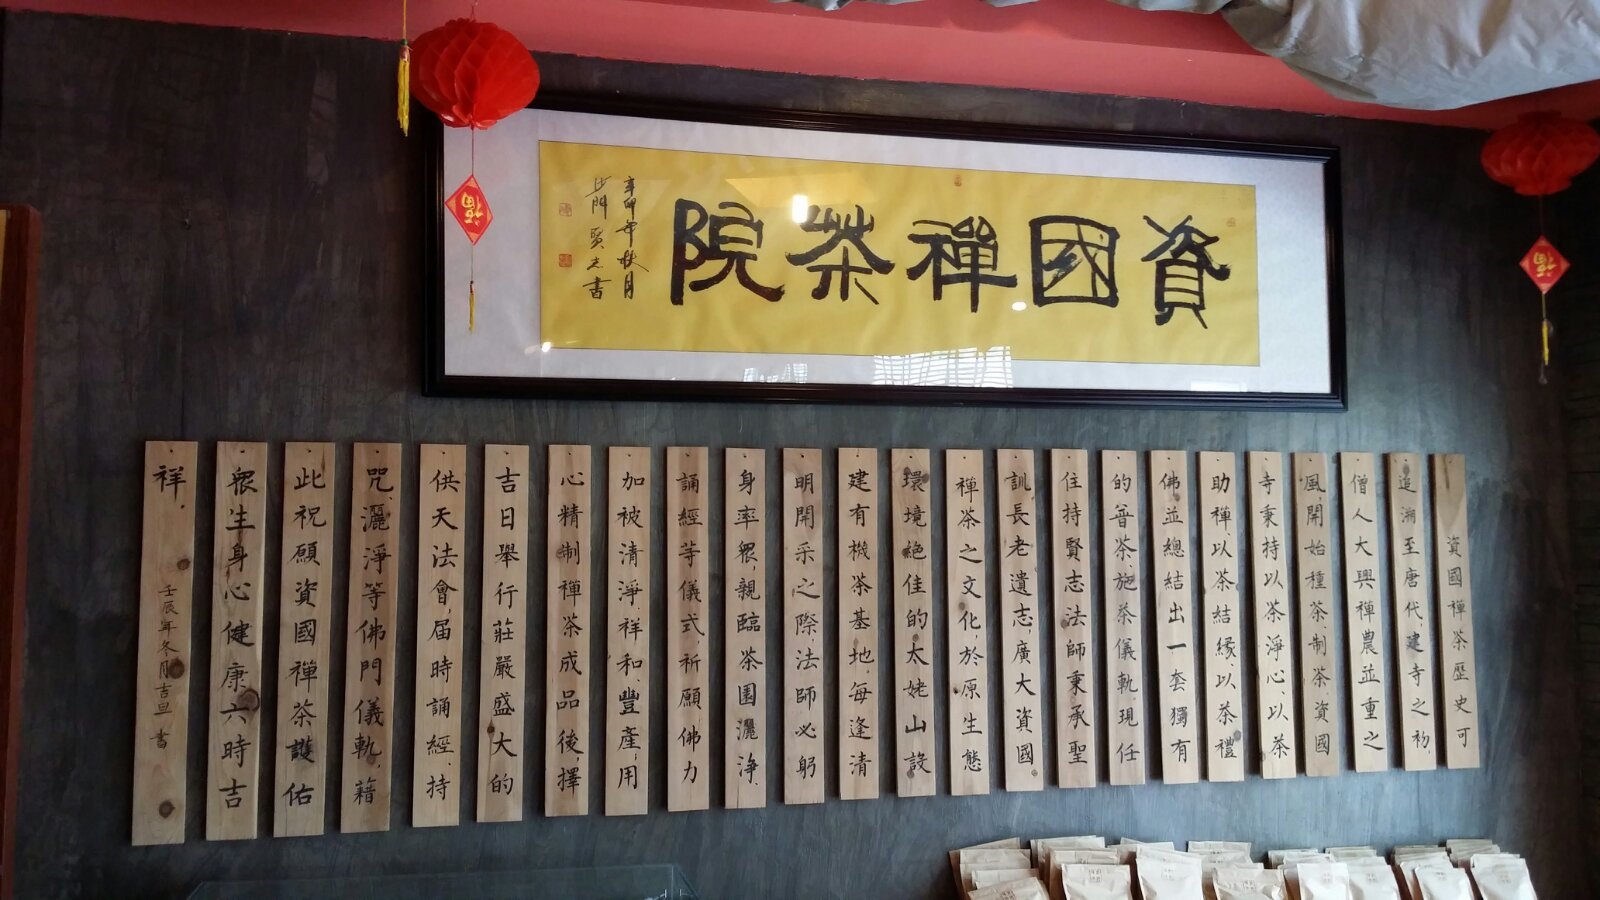 資國禪茶院
辛卯年秋月
沙門賢志書
資國禪茶歷史可
追溯至唐代建寺之初，
僧人大興禪農並重之
風，開始種茶、制茶，資國
寺秉持以茶淨心、以茶
助禪、以茶結緣、以茶禮
佛並總結出一套獨有
的普茶、施茶儀軌，現任
住持賢志法師秉承聖
訓長老遺志廣大資國
禪茶之文化，於原生態
環境絕佳的太姥山設
建有機茶基地，每逢清
明開采之際，法師必躬
身率眾，親臨茶園灑淨、
誦經等儀式祈願佛力
加被清淨祥和，豐產，用
心精制禪茶成品後，擇
吉日舉行莊嚴盛大的
供天法會，屆時誦經、持
咒、灑淨等佛門儀軌，藉
此祝願資國禪茶護佑
眾生身心健康六時吉
祥。
壬辰年冬月吉旦 書
福
福